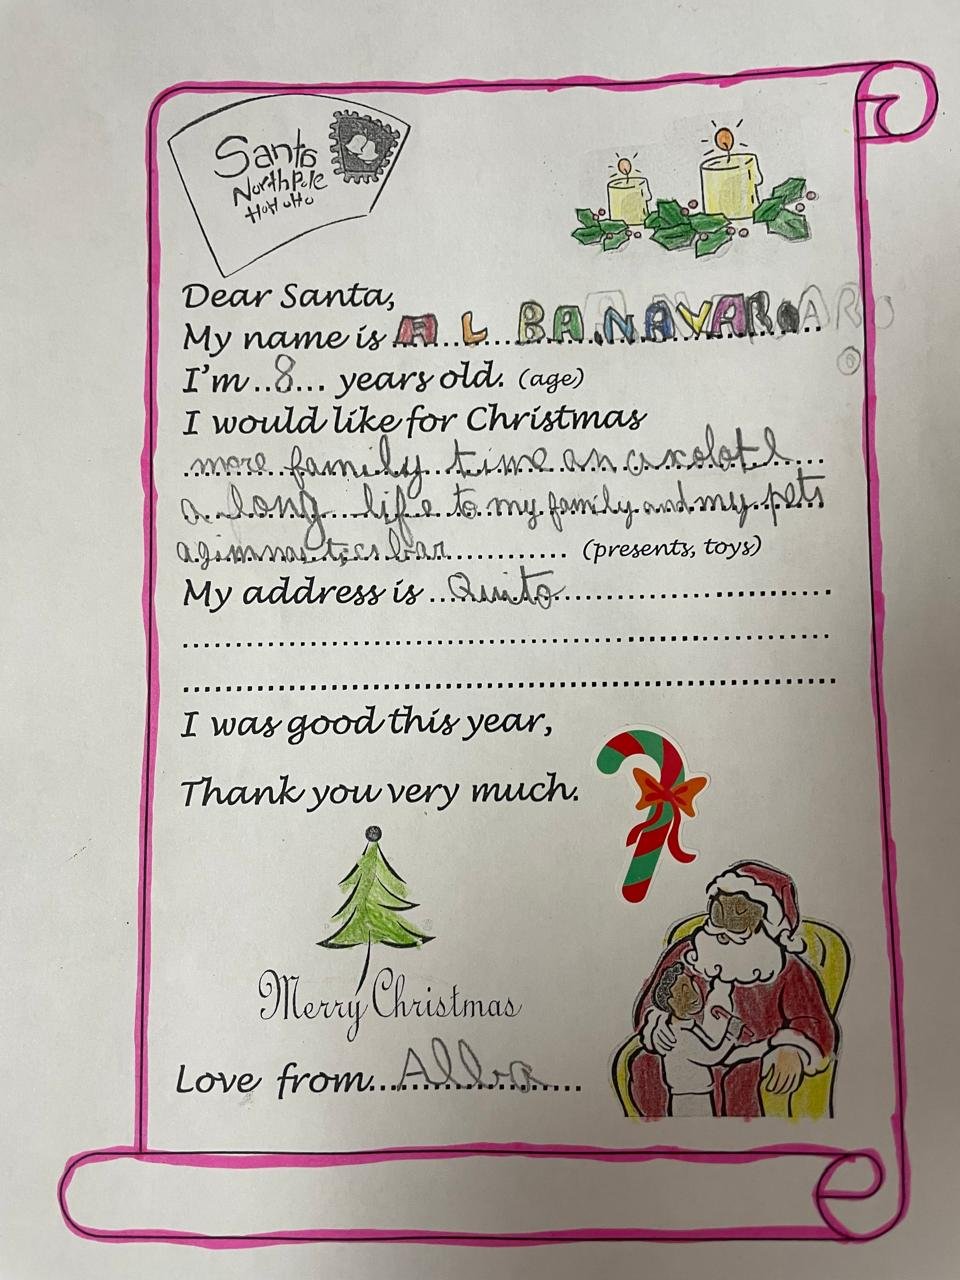 Santa
North Pole
HoHoHo
Dear Santa,
My name is ALBA NAVARO
I'm..8... years old. (age)
I would like for Christmas
more family time an axolotl
a long life to my family and my pets
a gimnastics bar (presents, toys)
My address is Quito
I was good this year,
Thank you very much.
Merry Christmas
Love from Alba